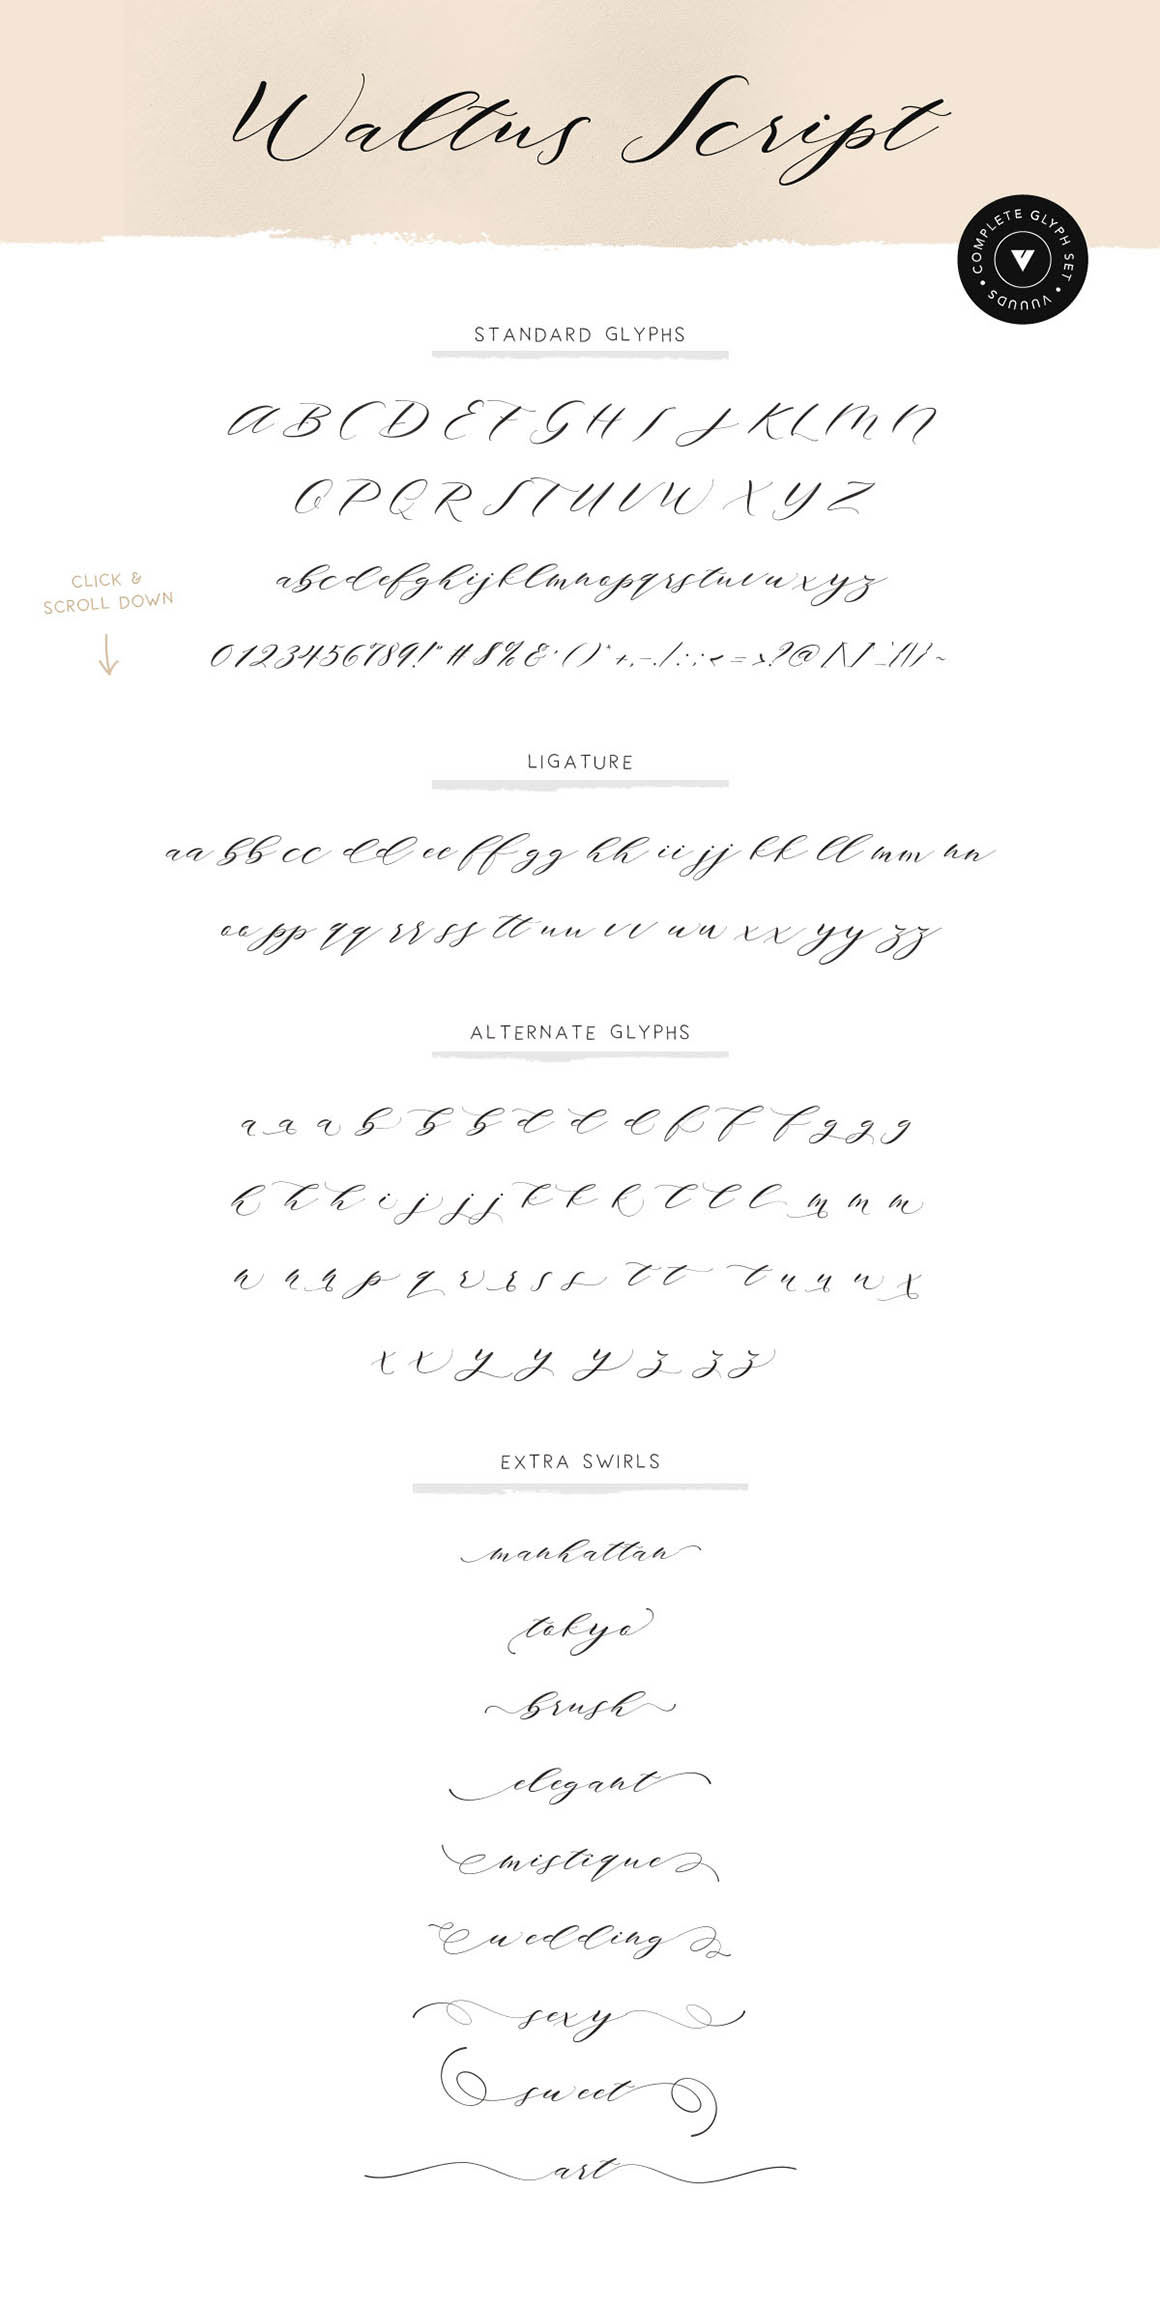 Waltus Script
COMPLETE GLYPH SET • VUUUDS •
STANDARD GLYPHS
A B C D E F G H I J K L M N
O P Q R S T U V W X Y Z
CLICK &
SCROLL DOWN
abcdefghijklmnopqrstuvwxyz
0123456789!"#$%&'()*+,-./:;<=>?@[\]^_`{|}~
LIGATURE
aa bb cc dd ee ff gg hh ii jj kk ll mm nn
oo pp qq rr ss tt uu vv ww xx yy zz
ALTERNATE GLYPHS
a a a b b b d d d f f f g g g
h h h i j j j k k k l l l m m m
n n n p q r r s s t t t u u u x
x x y y y z z z
EXTRA SWIRLS
manhattan
tokyo
brush
elegant
mistique
wedding
sexy
sweet
art